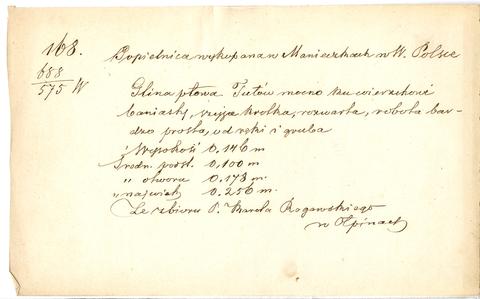 168.
688
575 W
Popielnica wykopana w Manieczkach w W. Polsce
Glina płowa Tułów mocno ku wierzchowi
baniasty, szyja krótka, rozwarta, robota bar-
dzo prosta, od ręki i gruba
Wysokość 0.146 m
Średn. podst. 0.100 m
" otworu 0.173 m.
" najwięk. 0.256 m.
Ze zbioru P. Karola Rogawskiego
w Ołpinach